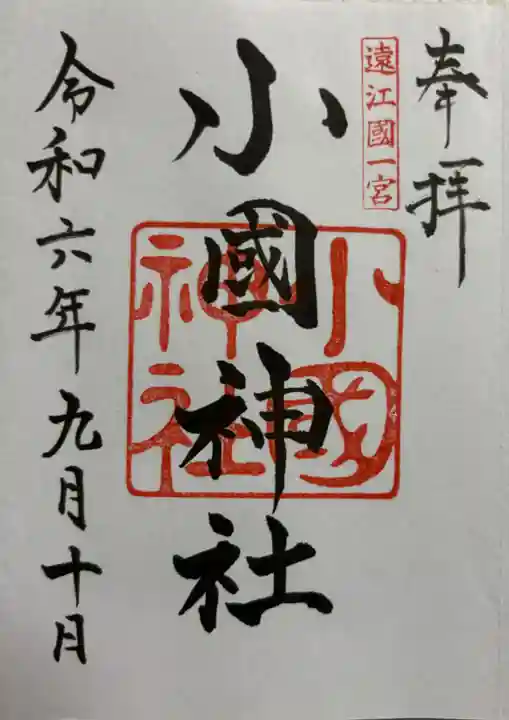 奉拝
遠江國一宮
小國神社
小國
神社
令和六年九月十日